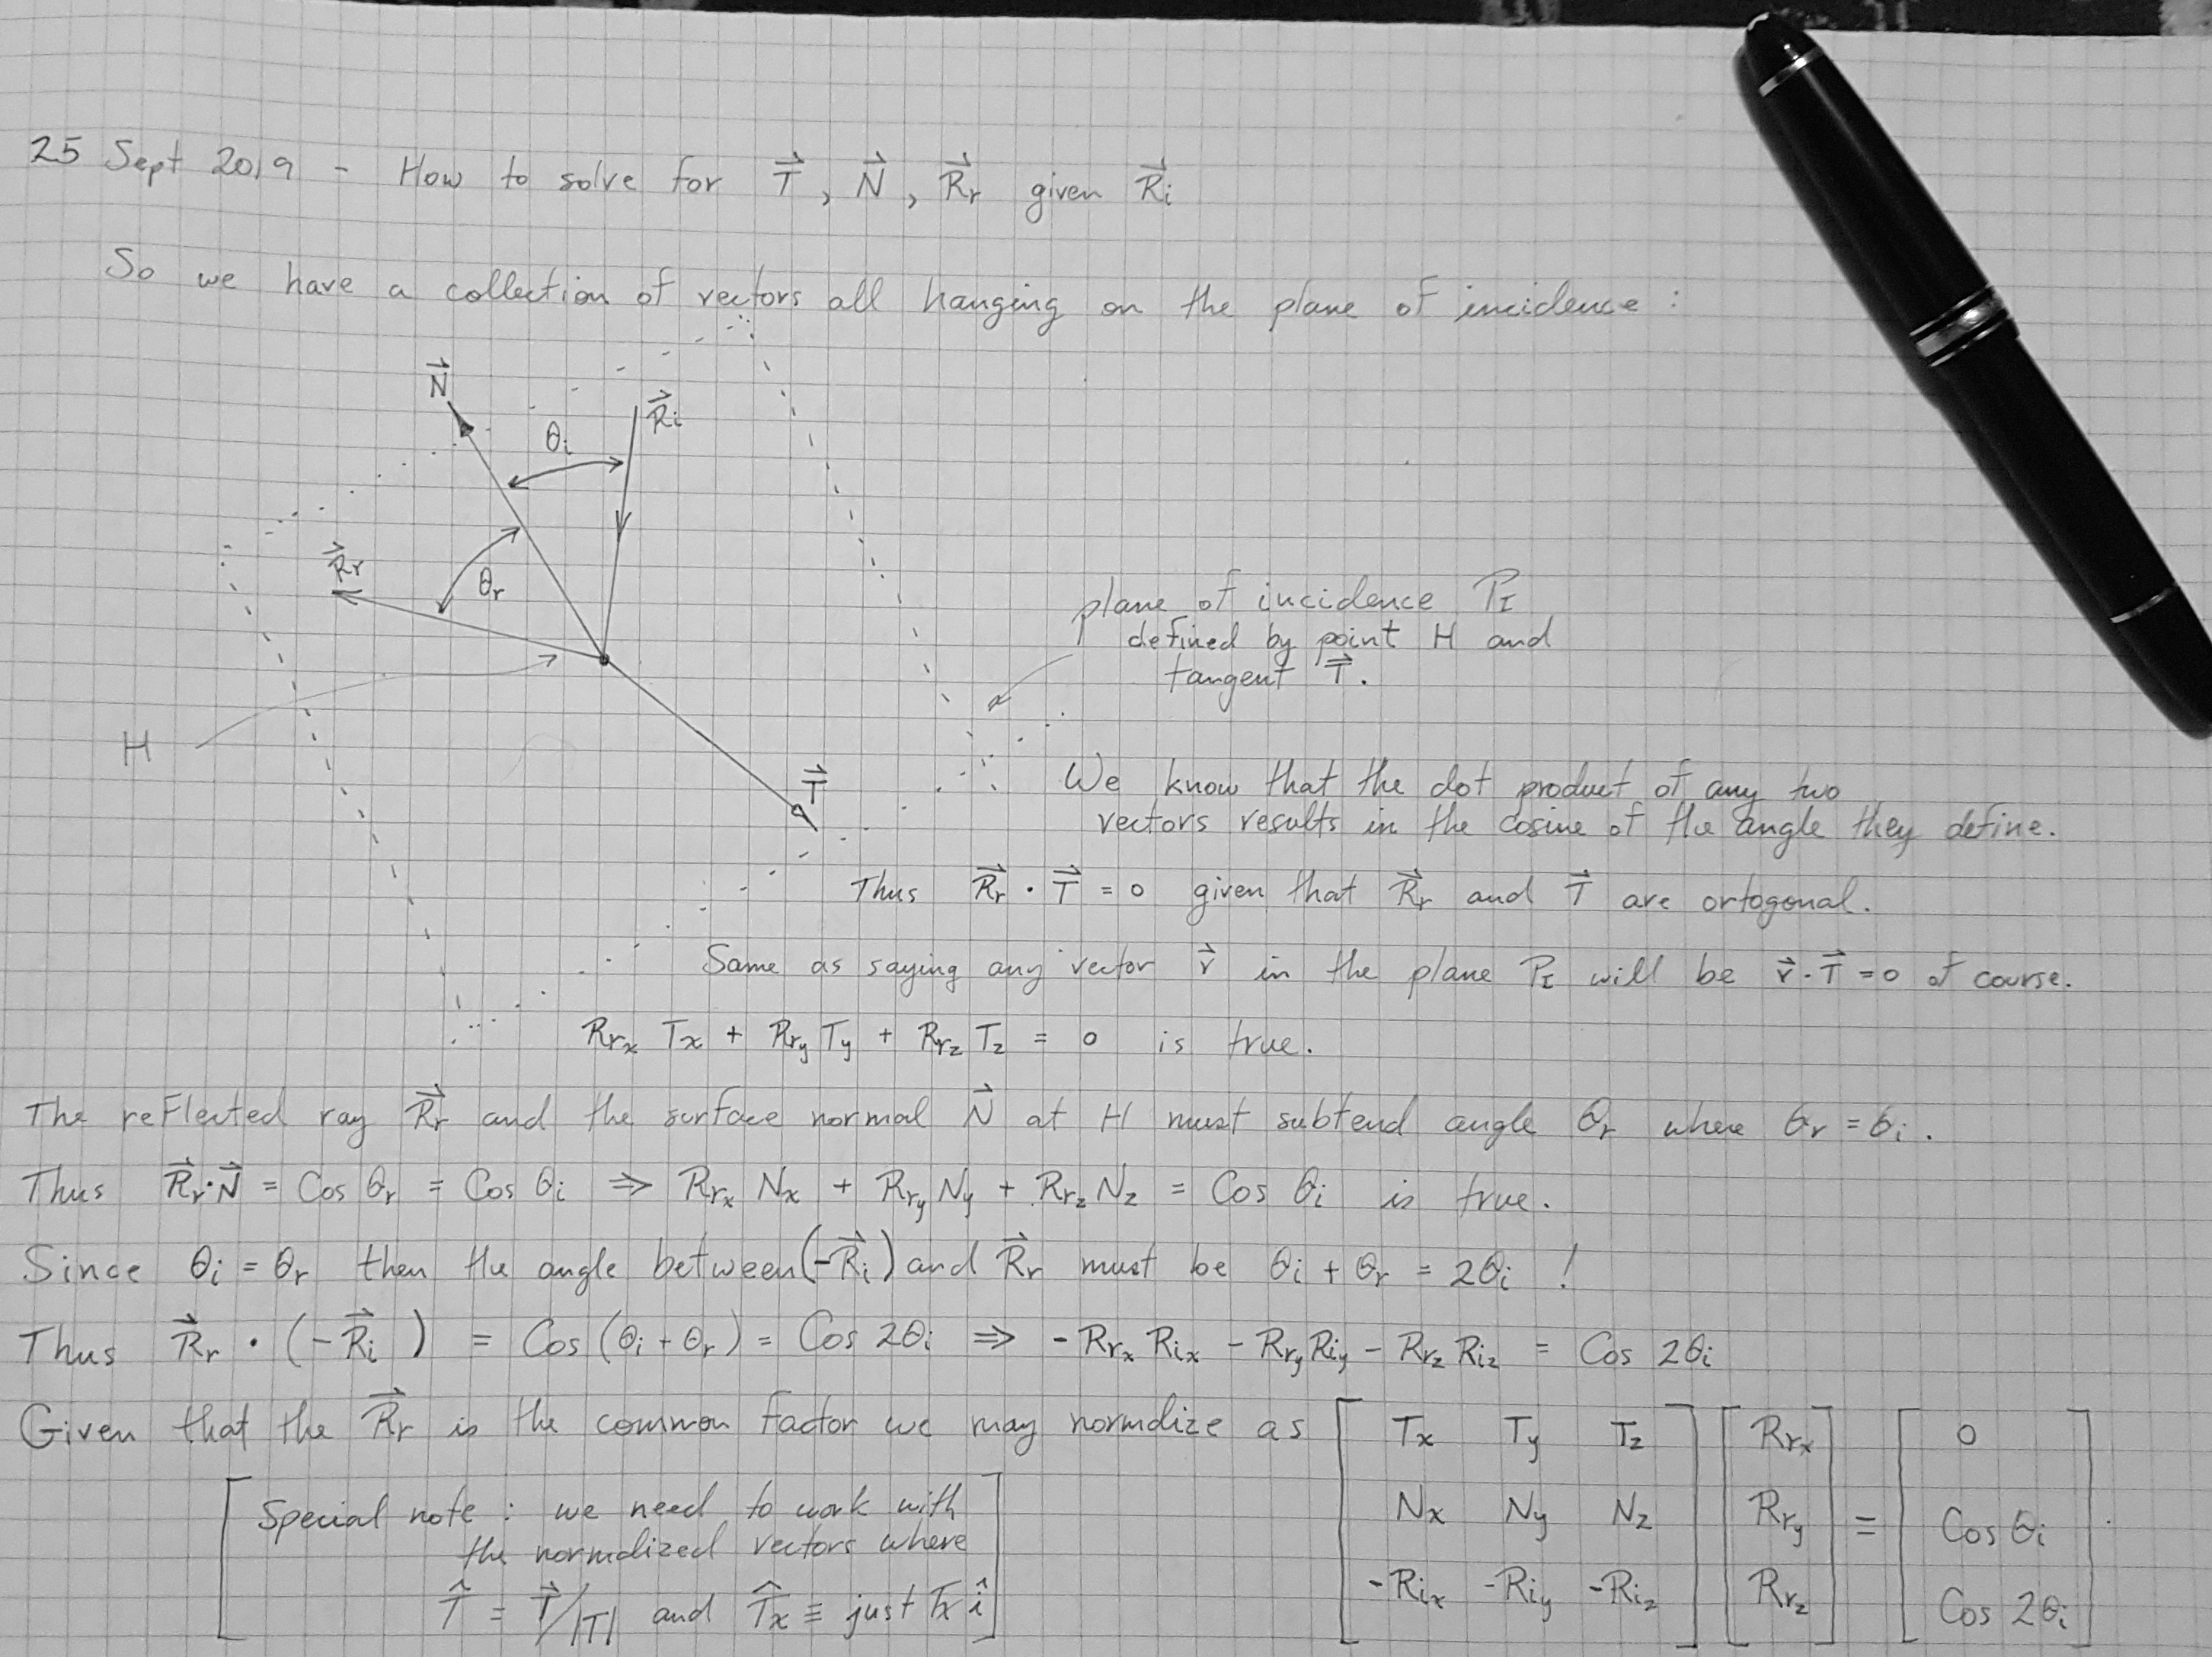 25 Sept 2019 - How to solve for T⃗, N⃗, R⃗r given R⃗i
So we have a collection of vectors all hanging on the plane of incidence :
N⃗
R⃗i
θi
R⃗r
θr
H
T⃗
plane of incidence PI
defined by point H and
tangent T⃗.
We know that the dot product of any two
vectors results in the cosine of the angle they define.
Thus R⃗r · T⃗ = 0 given that R⃗r and T⃗ are ortogonal.
Same as saying any vector r⃗ in the plane PI will be r⃗ · T⃗ = 0 of course.
Rrx Tx + Rry Ty + Rrz Tz = 0 is true.
The reflected ray R⃗r and the surface normal N⃗ at H must subtend angle θr where θr = θi.
Thus R⃗r · N⃗ = Cos θr = Cos θi ⇒ Rrx Nx + Rry Ny + Rrz Nz = Cos θi is true.
Since θi = θr then the angle between (-R⃗i) and R⃗r must be θi + θr = 2θi !
Thus R⃗r · (-R⃗i) = Cos (θi + θr) = Cos 2θi ⇒ -Rrx Rix - Rry Riy - Rrz Riz = Cos 2θi
Given that the R⃗r is the common factor we may normalize as
[ Tx Ty Tz ] [ Rrx ] = [ 0 ]
[ Nx Ny Nz ] [ Rry ] = [ Cos θi ] .
[ -Rix -Riy -Riz ] [ Rrz ] = [ Cos 2θi ]
[ Special note : we need to work with
the normalized vectors where
T̂ = T⃗/|T| and T̂x ≡ just Tx î ]